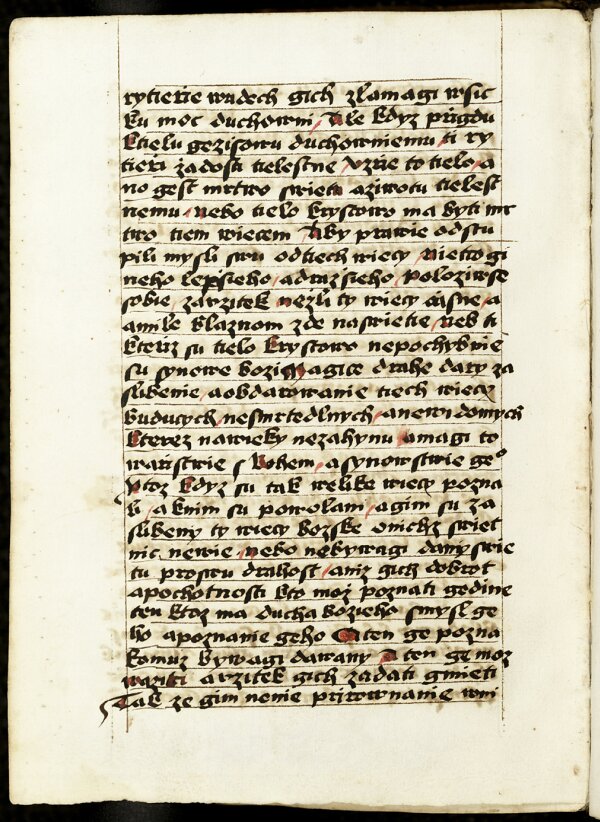 rytierie wudech gich zlamagi wsic
ku moc duchowni Ale kdyz prigdu
ktielu gezisowu duchowniemu ti ry
tieri zadosti tielestne vzrie to tielo a
no gest mrtwo swietu aziwotu tielest
nemu nebo tielo krystowo ma byti mr
two tiem wiecem Aby prawie odstu
pili mysli swu odtiech wiecy nietco gi
neho lepsieho adrazsieho polozivse
sobie zauzitek nezli ty wiecy casne a
amile blaznom zde naswietie neb ti
kteriz su tielo krystowo nepochybnie
su synowe bozi magice drahe dary za
slibenie aobdarowanie tiech wiecy
buducych nesmrtedlnych anewidomych
kterez nawieky nezahynu amagi to
wafistwie s bohem asynowstwie geo
Protoz kdyz su tak welike wiecy pozna
li aknim su powolani agim su za
slibeny ty wiecy bozske onichz swiet
nic newie nebo nebywagi dany swie
tu proswu drahost aniz gich dobrot
apochotnosti kto moz poznati gedine
ten ktoz ma ducha bozieho smysl ge
ho apoznanie geho A ten ge pozna
komuz bywagi dawany A ten ge moz
waziti auzitek gich zadati gmieti
Tak ze gim nenie prirownanie wni